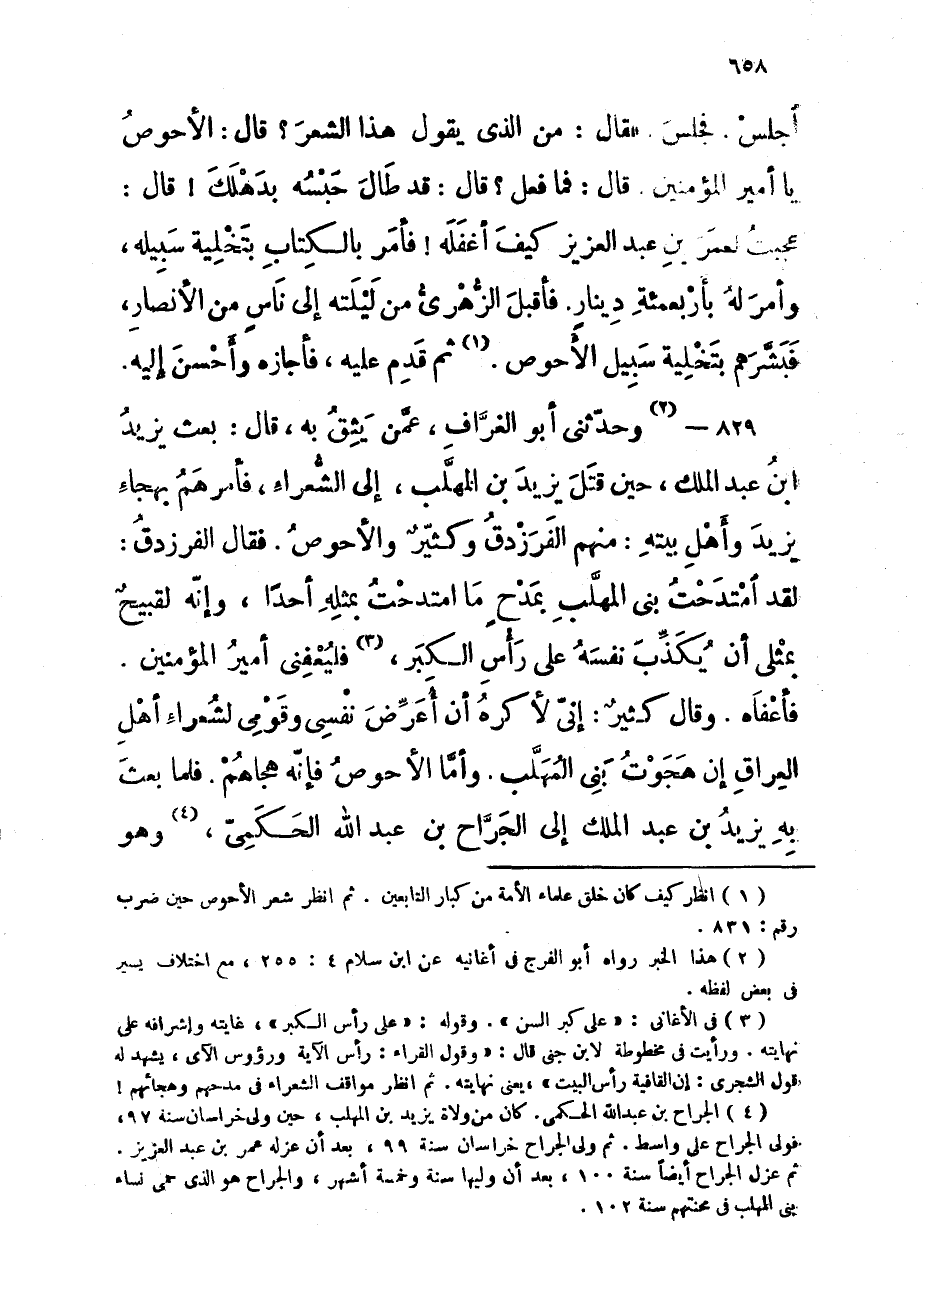 ٦٥٨
أجلسْ . فجلسَ . فقال : من الذى يقول هذا الشعرَ ؟ قال : الأحوصُ
يا أمير المؤمنين . قال : فما فعل ؟ قال : قد طَالَ حَبْسُه بدَهْلَكَ ! قال :
عجبتُ لعمرَ بنِ عبد العزيز كيفَ أغفَلَه ! فأمَر بالكِتابِ بتَخْلِية سَبِيله ،
وأمرَ لهُ بأرْبعمئةِ دِينارٍ . فأقبلَ الزُّهْرىُّ من لَيْلَته إلى نَاسٍ من الأنصارِ ،
فَبَشَّرَهم بتَخْلِية سَبِيل الأَحوص . (١) ثم قَدِم عليه ، فأجازه وأَحْسنَ إليه .
٨٢٩ — (٢) وحدّثنى أبو الغرَّافِ ، عمَّن يَثِقُ به ، قال : بعث يزيدُ
ابنُ عبد الملك ، حين قتَلَ يزيدَ بن المهلَّب ، إلى الشُّعراء ، فأمرهَمُ بهجاءِ
يزيدَ وأَهْلِ بيتهِ : منهم الفَرَزْدقُ وكثيّرٌ والأحوصُ . فقال الفرزدقُ :
لقد اُمْتدَحْتُ بنى المهلَّبِ بمَدْحٍ مَا امتدحْتُ بمثلِهِ أحدًا ، وإنّه لقبيحٌ
بمثْلِى أن يُكَذِّبَ نفسَهُ على رَأْسِ الكِبَر ، (٣) فليُعْفِنى أميرُ المؤمنين .
فأعْفاَه . وقال كثيرٌ : إنىّ لأكرهُ أن أُعَرِّضَ نفْسِى وقَوْمِى لشُعراءِ أهْلِ
العِراقِ إن هَجَوْتُ بَنِى المُهَلَّب . وأمَّا الأحوصُ فإنّه هجاهُمْ . فلما بعثَ
بِهِ يزيدُ بن عبد الملك إلى الجَرَّاح بن عبد الله الحَكَمِىّ ، (٤) وهو
( ١ ) انظر كيف كان خلق علماء الأمة من كبار التابعين . ثم انظر شعر الأحوص حين ضرب
رقم : ٨٣١ .
( ٢ ) هذا الخبر رواه أبو الفرج فى أغانيه عن ابن سلام ٤ : ٢٥٥ ، مع اختلاف يسير
فى بعض لفظه .
( ٣ ) فى الأغانى : « على كبر السن » . وقوله : « على رأس الكبر » ، غايته وإشرافه على
نهايته . ورأيت فى مخطوطة لابن جنى قال : « وقول القراء : رأس الآية ورؤوس الآى ، يشهد له
قول الشجرى : إن القافية رأس البيت » ، يعنى نهايته . ثم انظر مواقف الشعراء فى مدحهم وهجائهم !
( ٤ ) الجراح بن عبدالله الحكمى . كان من ولاة يزيد بن المهلب ، حين ولى خراسان سنة ٩٧ ،
فولى الجراح على واسط . ثم ولى الجراح خراسان سنة ٩٩ ، بعد أن عزله عمر بن عبد العزيز .
ثم عزل الجراح أيضاً سنة ١٠٠ ، بعد أن وليها سنة وخمسة أشهر ، والجراح هو الذى حمى نساء
بنى المهلب فى محنتهم سنة ١٠٢ .